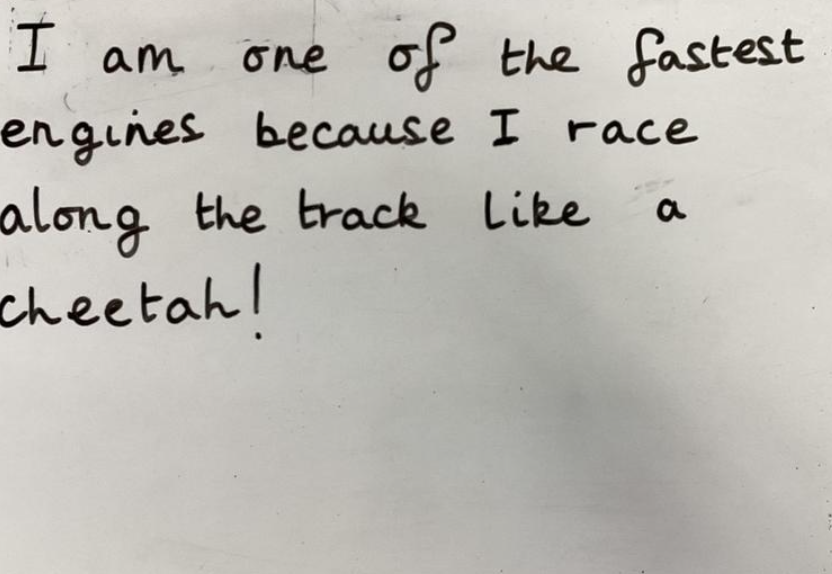 I am one of the fastest
engines because I race
along the track like a
cheetah!